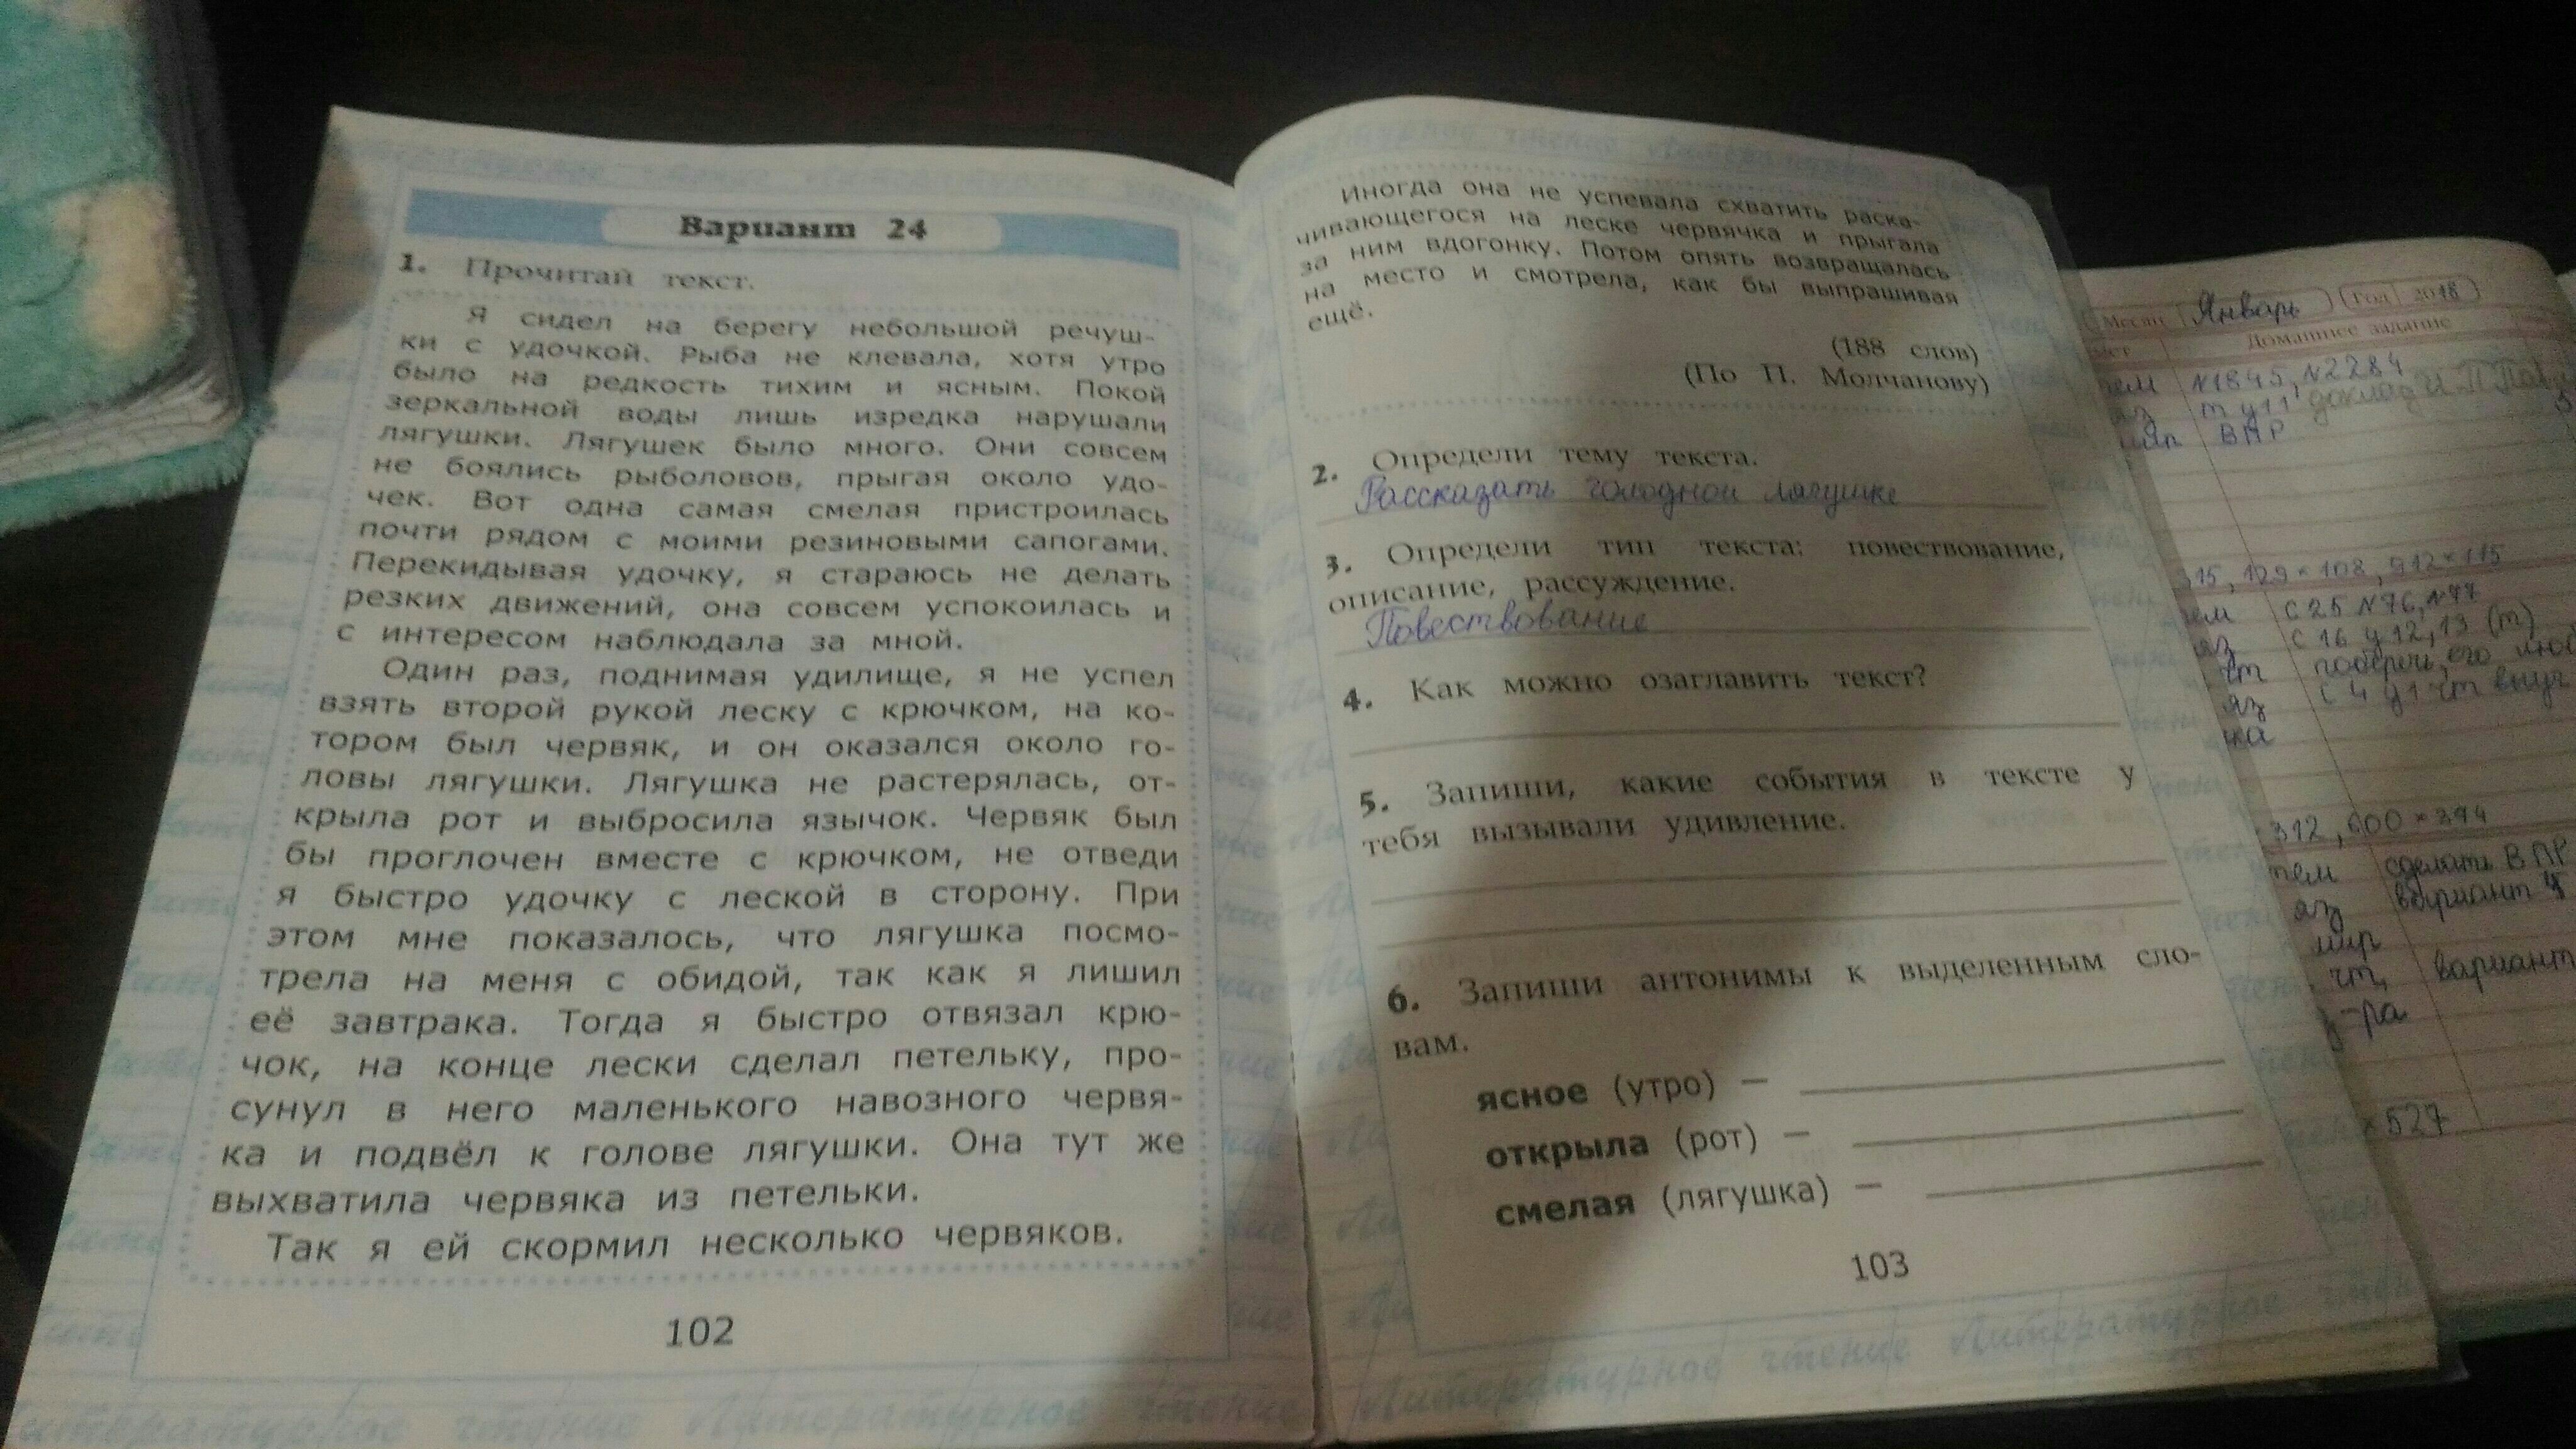 Вариант 24
1. Прочитай текст.
Я сидел на берегу небольшой речуш-
ки с удочкой. Рыба не клевала, хотя утро
было на редкость тихим и ясным. Покой
зеркальной воды лишь изредка нарушали
лягушки. Лягушек было много. Они совсем
не боялись рыболовов, прыгая около удо-
чек. Вот одна самая смелая пристроилась
почти рядом с моими резиновыми сапогами.
Перекидывая удочку, я стараюсь не делать
резких движений, она совсем успокоилась и
с интересом наблюдала за мной.
Один раз, поднимая удилище, я не успел
взять второй рукой леску с крючком, на ко-
тором был червяк, и он оказался около го-
ловы лягушки. Лягушка не растерялась, от-
крыла рот и выбросила язычок. Червяк был
бы проглочен вместе с крючком, не отведи
я быстро удочку с леской в сторону. При
этом мне показалось, что лягушка посмо-
трела на меня с обидой, так как я лишил
её завтрака. Тогда я быстро отвязал крю-
чок, на конце лески сделал петельку, про-
сунул в него маленького навозного червя-
ка и подвёл к голове лягушки. Она тут же
выхватила червяка из петельки.
Так я ей скормил несколько червяков.
102
Иногда она не успевала схватить раска-
чивающегося на леске червячка и прыгала
за ним вдогонку. Потом опять возвращалась
на место и смотрела, как бы выпрашивая
ещё.
(188 слов)
(По П. Молчанову)
2. Определи тему текста.
Рассказать голодной лягушке
3. Определи тип текста: повествование,
описание, рассуждение.
Повествование
4. Как можно озаглавить текст?
5. Запиши, какие события в тексте у
тебя вызывали удивление.
6. Запиши антонимы к выделенным сло-
вам.
ясное (утро) —
открыла (рот) —
смелая (лягушка) —
103
Литературное чтение Литературное
Месяц Январь Год 2018
Домашнее задание
N1845, N2284
доклад
ВПР
15, 129×108, 912×115
с 25 N76, N77
с 16 у 12, 13 (т)
его
312, 600×394
сделать ВПР
вариант
мир
вариант
×527